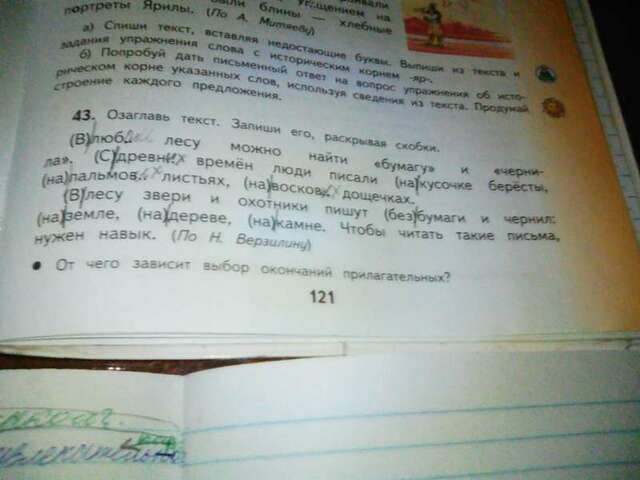 портреты Ярилы. (По А. Митяеву)
блины — хлебные
а) Спиши текст, вставляя недостающие буквы. Выпиши из текста и
задания упражнения слова с историческим корнем -яр-.
б) Попробуй дать письменный ответ на вопрос упражнения об исто-
рическом корне указанных слов, используя сведения из текста. Продумай
строение каждого предложения.
43. Озаглавь текст. Запиши его, раскрывая скобки.
(В)люб.. лесу можно найти «бумагу» и «черни-
ла». (С)древних времён люди писали (на)кусочке берёсты,
(на)пальмов..х листьях, (на)восков..х дощечках.
(В)лесу звери и охотники пишут (без)бумаги и чернил:
(на)земле, (на)дереве, (на)камне. Чтобы читать такие письма,
нужен навык. (По Н. Верзилину)
• От чего зависит выбор окончаний прилагательных?
121